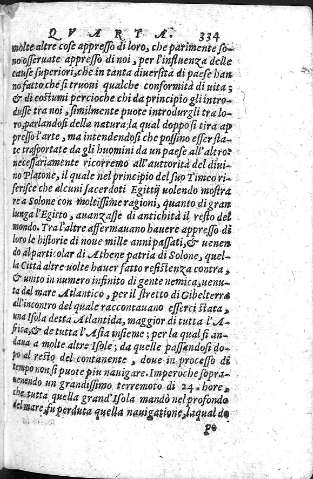 QVARTA. 334
molte altre cose appresso di loro, che parimente so-
no osseruate appresso di noi, per l'influenza delle
cause superiori, che in tanta diuersita di paese han
no fatto, che si truoni qualche conformità di uita;
& di costumi percioche chi da principio gli intro-
dusse tra noi, similmente puote introdurgli tra lo-
ro, parlandosi della natura: la qual dopposi tira ap
presso l'arte, ma intendendosi che possino esser sta-
te trasportate da gli huomini da un paese all'altro:
necessariamente ricorremo all'auttorità del diui-
no Platone, il quale nel principio del suo Timeo ri-
ferisce che alcuni sacerdoti Egittij uolendo mostra
re a Solone con moltissime ragioni, quanto di gran
lunga l'Egitto, auanzasse di antichità il resto del
mondo. Tra l'altre affermauano hauere appresso di
loro le historie di noue mille anni passati, & uenen
do al particolar di Athene patria di Solone, quel-
la Città altre uolte hauer fatto resistenza contra,
& unito in numero infinito di gente nemica, uenu-
ta dal mare Atlantico, per il stretto di Gibelterra
all'incontro del quale raccontauano esserci stata,
una Isola detta Atlantida, maggior di tutta l'A-
frica, & de tutta l'Asia insieme; per la qual si an-
daua a molte altre Isole; da quelle passandosi do-
po al resto del contanente, doue in processo di
tempo non si puote piu nauigare. Imperoche sopra-
uenendo un grandissimo terremoto di 24. hore,
che tutta quella grand'Isola mandò nel profondo
del mare, fu perduta quella nauigatione, laqual do
po